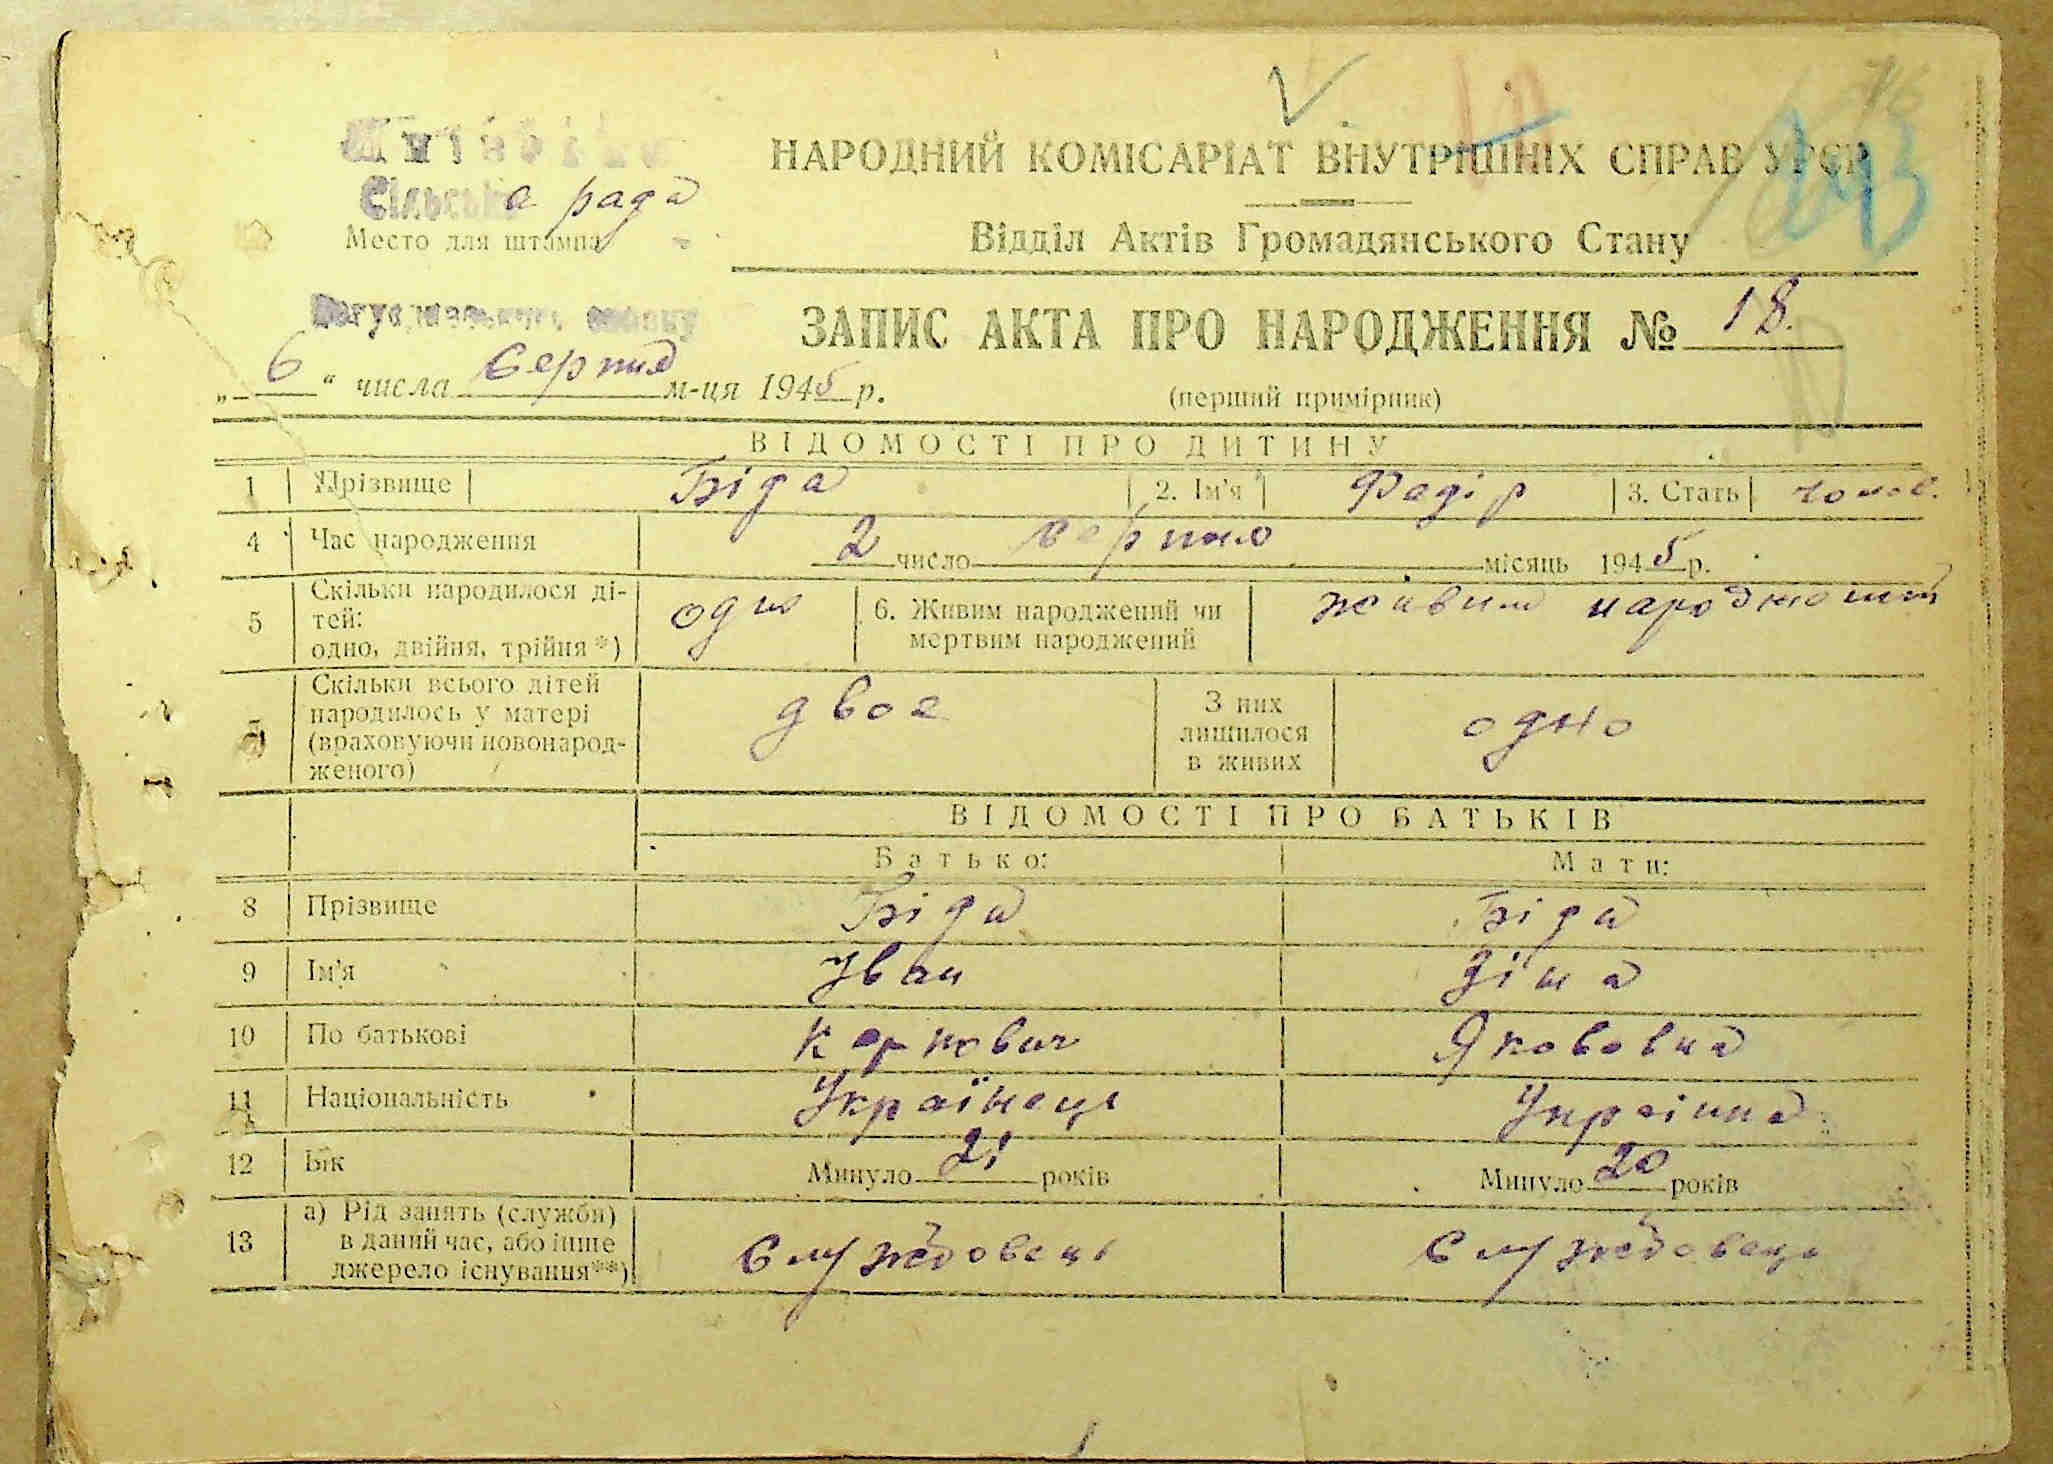 Сільська рада
Место для штампа
НАРОДНИЙ КОМІСАРІАТ ВНУТРІШНІХ СПРАВ УРСР
Відділ Актів Громадянського Стану
ЗАПИС АКТА ПРО НАРОДЖЕННЯ № 18.
„ 6 “ числа Серпня м-ця 1945 р.
(перший примірник)
ВІДОМОСТІ ПРО ДИТИНУ
1 Прізвище Біда 2. Ім'я Федір 3. Стать чолов.
4 Час народження 2 число серпня місяць 1945 р.
5 Скільки народилося ді-
тей:
одно, двійня, трійня*) одна 6. Живим народжений чи
мертвим народжений живим народженний
7 Скільки всього дітей
народилось у матері
(враховуючи новонарод-
женого) двое З них
лишилося
в живих одно
ВІДОМОСТІ ПРО БАТЬКІВ
Батько: Мати:
8 Прізвище Біда Біда
9 Ім'я Іван Зіна
10 По батькові Карпович Якововна
11 Національність Українець Украінка
12 Вік Минуло 21 років Минуло 20 років
13 а) Рід занять (служби)
в даний час, або інше
джерело існування**) Службовець Службовець